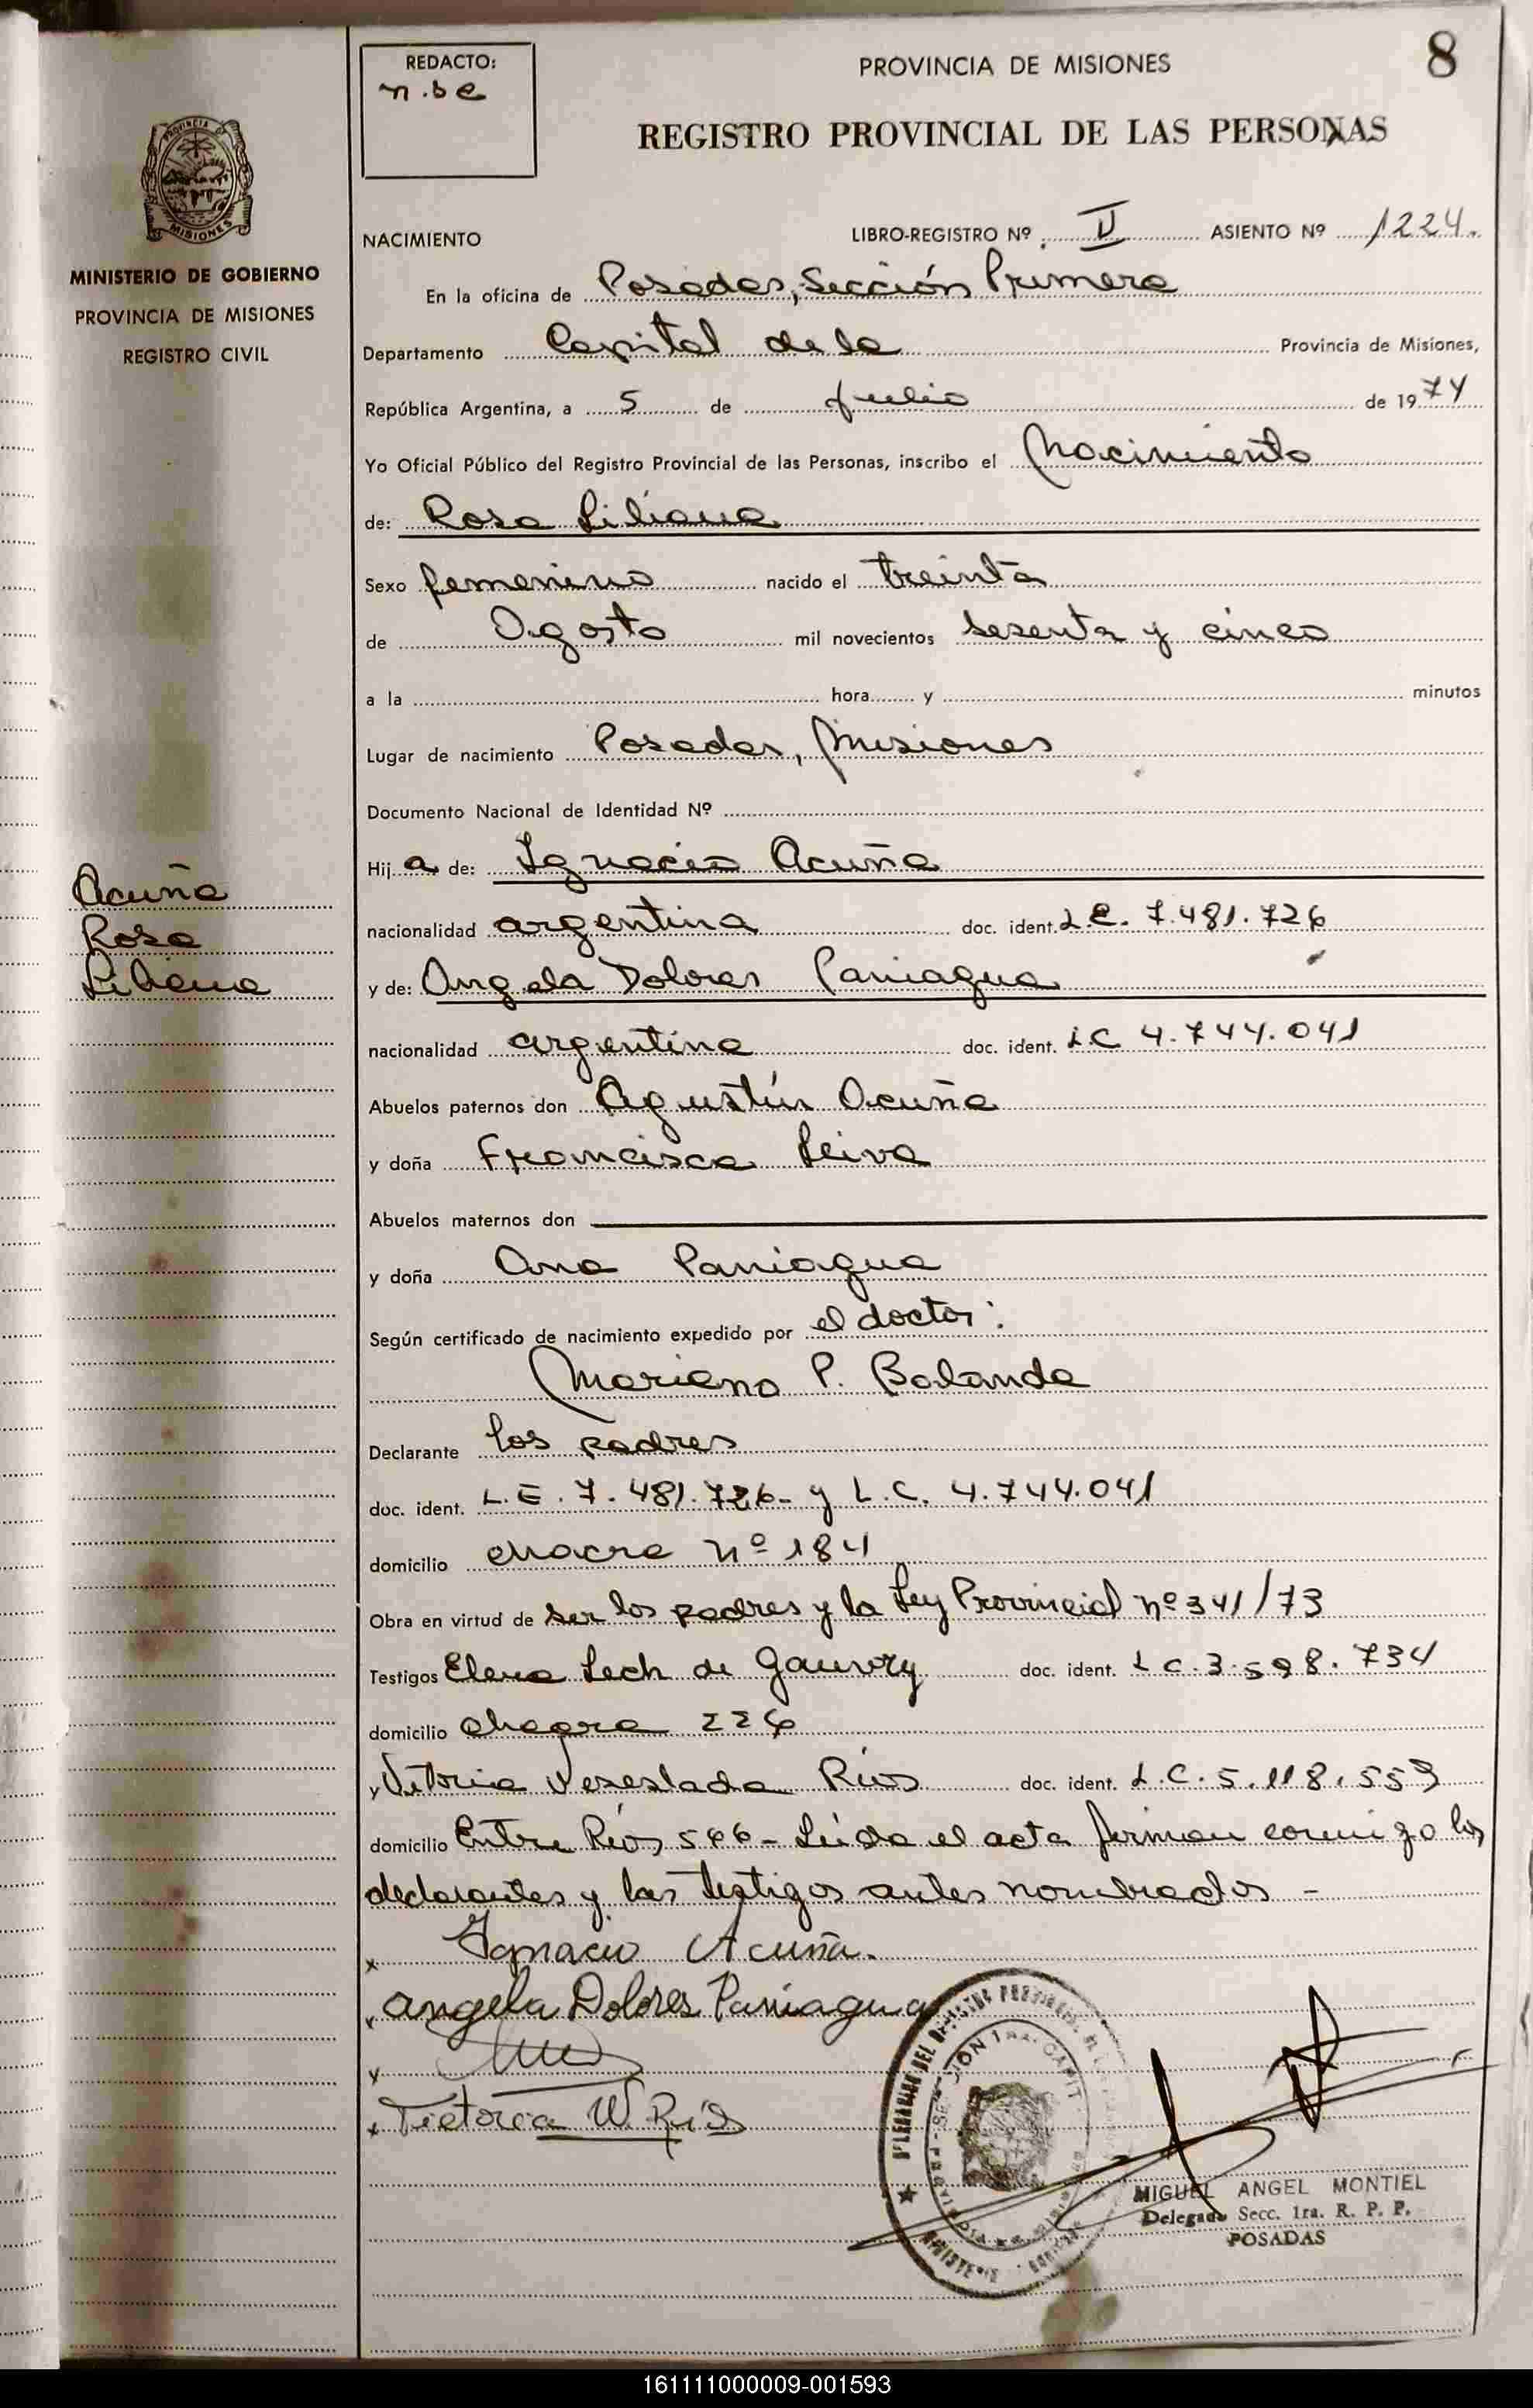 REDACTO:
n.be
PROVINCIA DE MISIONES
8
REGISTRO PROVINCIAL DE LAS PERSONAS
PROVINCIA
MISIONES
MINISTERIO DE GOBIERNO
PROVINCIA DE MISIONES
REGISTRO CIVIL
NACIMIENTO LIBRO-REGISTRO Nº II ASIENTO Nº 1224.
En la oficina de Posadas, Sección Primera
Departamento Capital de la Provincia de Misiones,
República Argentina, a 5 de Julio de 1974
Yo Oficial Público del Registro Provincial de las Personas, inscribo el Nacimiento
de: Rosa Liliana
Sexo femenino nacido el treinta
de Agosto mil novecientos sesenta y cinco
a la hora y minutos
Lugar de nacimiento Posadas, Misiones
Documento Nacional de Identidad Nº
Hija de: Ignacio Acuña
Acuña
Rosa
Liliana
nacionalidad argentina doc. ident. L.E. 7.481.726
y de: Angela Dolores Paniagua
nacionalidad argentina doc. ident. L.C 4.744.041
Abuelos paternos don Agustín Acuña
y doña Francisca Leiva
Abuelos maternos don
y doña Ana Paniagua
Según certificado de nacimiento expedido por el doctor:
Mariano P. Balanda
Declarante los padres
doc. ident. L.E. 7.481.726- y L.C. 4.744.041
domicilio chacra nº 184
Obra en virtud de ser los padres y la Ley Provincial nº 341/73
Testigos Elena Lech de doc. ident. L C. 3.598.734
domicilio chacra 226
y Vitoria Rios doc. ident. L.C. 5.118.559
domicilio Entre Rios 566- Leida el acta firman conmigo los
declarantes y los testigos antes nombrados -
x Ignacio Acuña.
x Angela Dolores Paniagua
x
x Victoria W. Rios
MIGUEL ANGEL MONTIEL
Delegado Secc. 1ra. R. P. P.
POSADAS
161111000009-001593